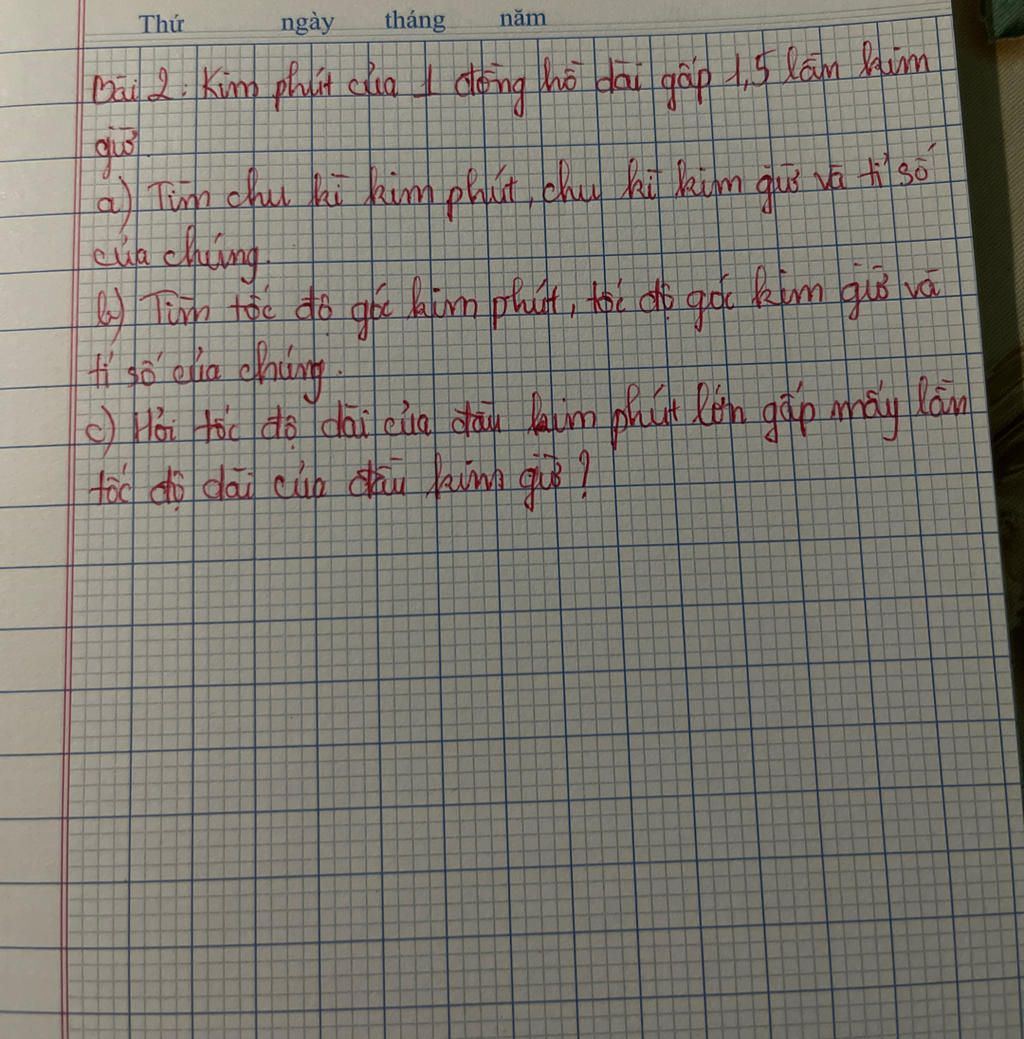 Thứ ngày tháng năm
Bài 2: Kim phút của 1 đồng hồ dài gấp 1,5 lần kim
giờ.
a) Tìm chu kì kim phút, chu kì kim giờ và tỉ số
của chúng.
b) Tìm tốc độ góc kim phút, tốc độ góc kim giờ và
tỉ số của chúng.
c) Hỏi tốc độ dài của đầu kim phút lớn gấp mấy lần
tốc độ dài của đầu kim giờ?